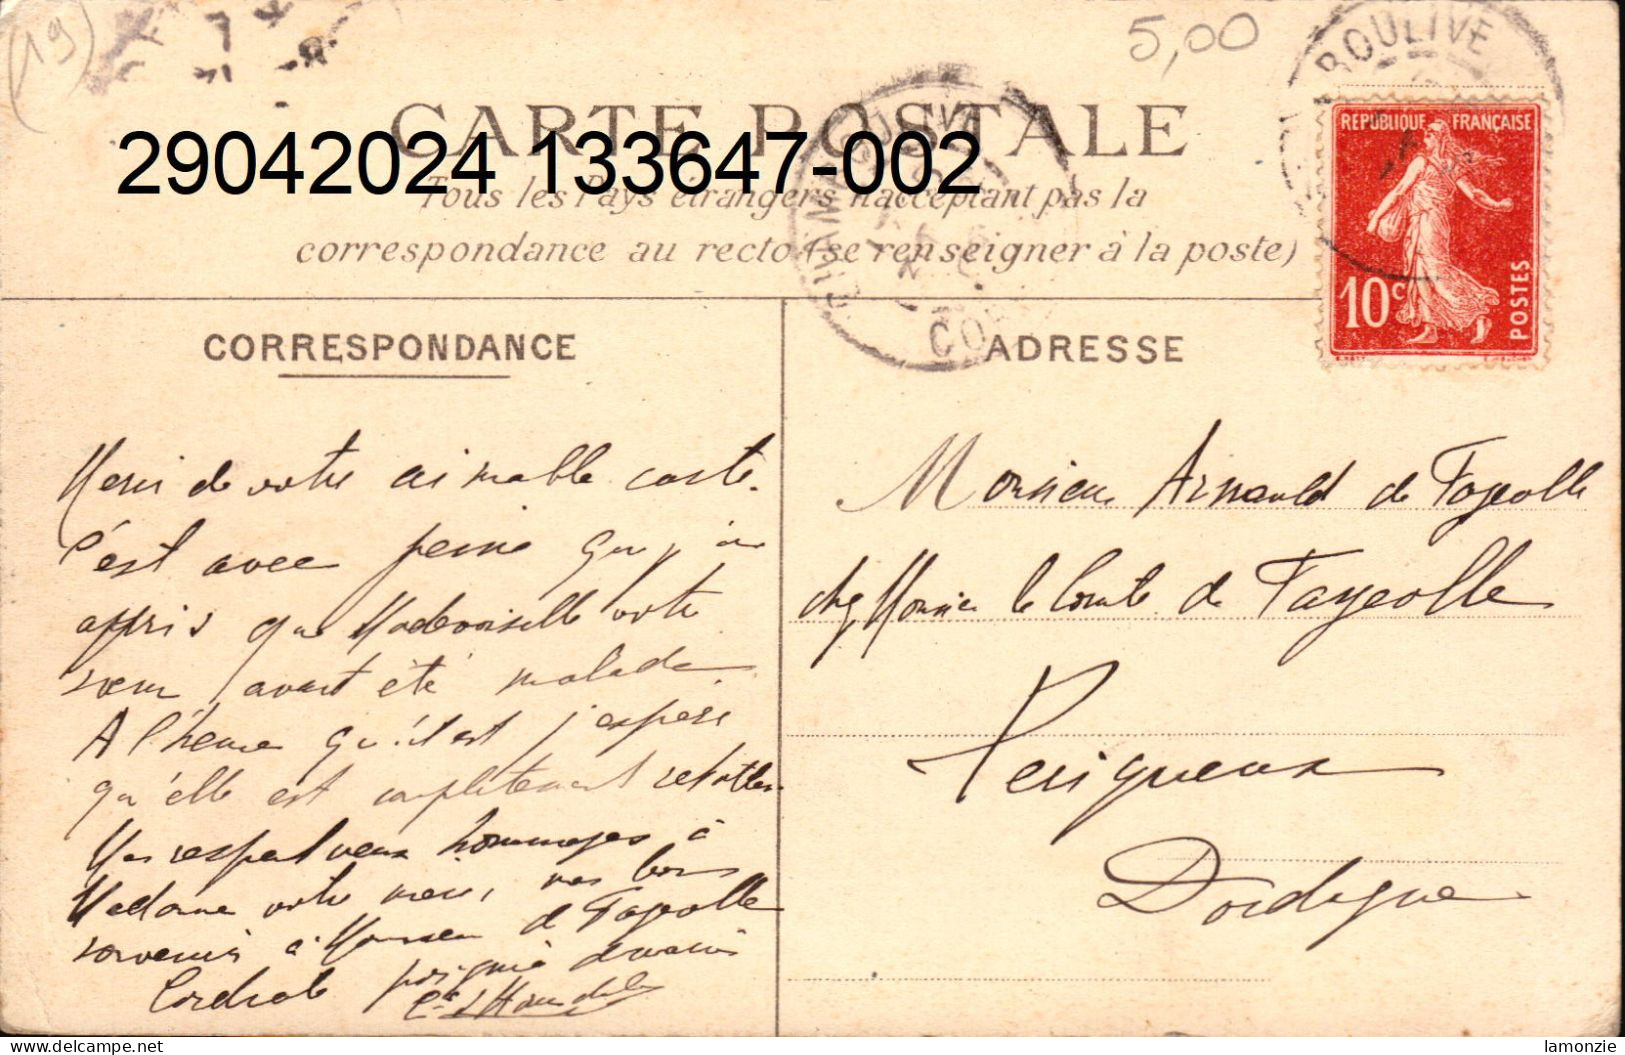 (19)
5,00
BOULIVE
CARTE POSTALE
29042024 133647-002
Tous les Pays étrangers n'acceptent pas la
correspondance au recto (se renseigner à la poste)
REPUBLIQUE FRANÇAISE
10c
POSTES
CORRESPONDANCE
ADRESSE
Merci de votre aimable carte.
C'est avec peine que j'ai
appris que Mademoiselle votre
sœur avait été malade.
A l'heure qu'il est j'espère
qu'elle est complètement rétablie.
Mes respectueux hommages à
Madame votre mère, mes bons
souvenirs à Monsieur de Fayolle
Cordiale poignée de main
Monsieur Arnauld de Fayolle
chez Monsieur le Comte de Fayolle
Perigueux
Dordogne
lamonzie